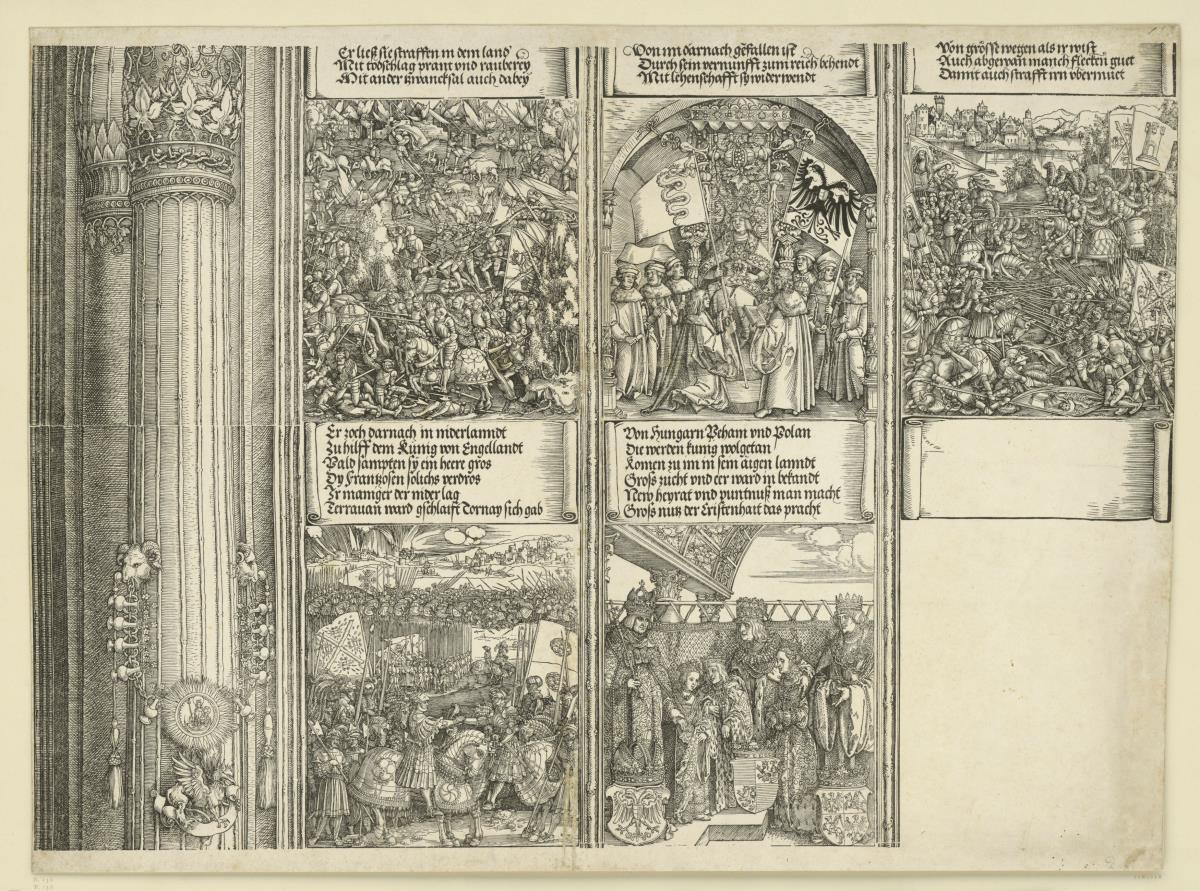 Er ließ sie straffen in dem land
Mit todschlag prant vnd rauberey
Mit ander zwancksal auch dabey
Von im darnach gefallen ist
Durch sein vernunfft zum reich behendt
Mit lehenschafft sy widerwendt
Von grösse wegen als ir wist
Auch abgewan manch flecken guet
Damit auch strafft irn vbermuet
Er zoch darnach in niderlanndt
Zu hilff dem Künig von Engellandt
Pald sampten sy ein heere gros
Dy Frantzosen solichs verdros
Ir maniger der nider lag
Terrauan ward gschlaift Tornay sich gab
Von Hungarn Peham vnd Polan
Die werden kunig wolgetan
Komen zu im in sein aigen lanndt
Groß zucht vnd eer ward in bekandt
New heyrat vnd puntnuß man macht
Groß nutz der Cristenhait das pracht